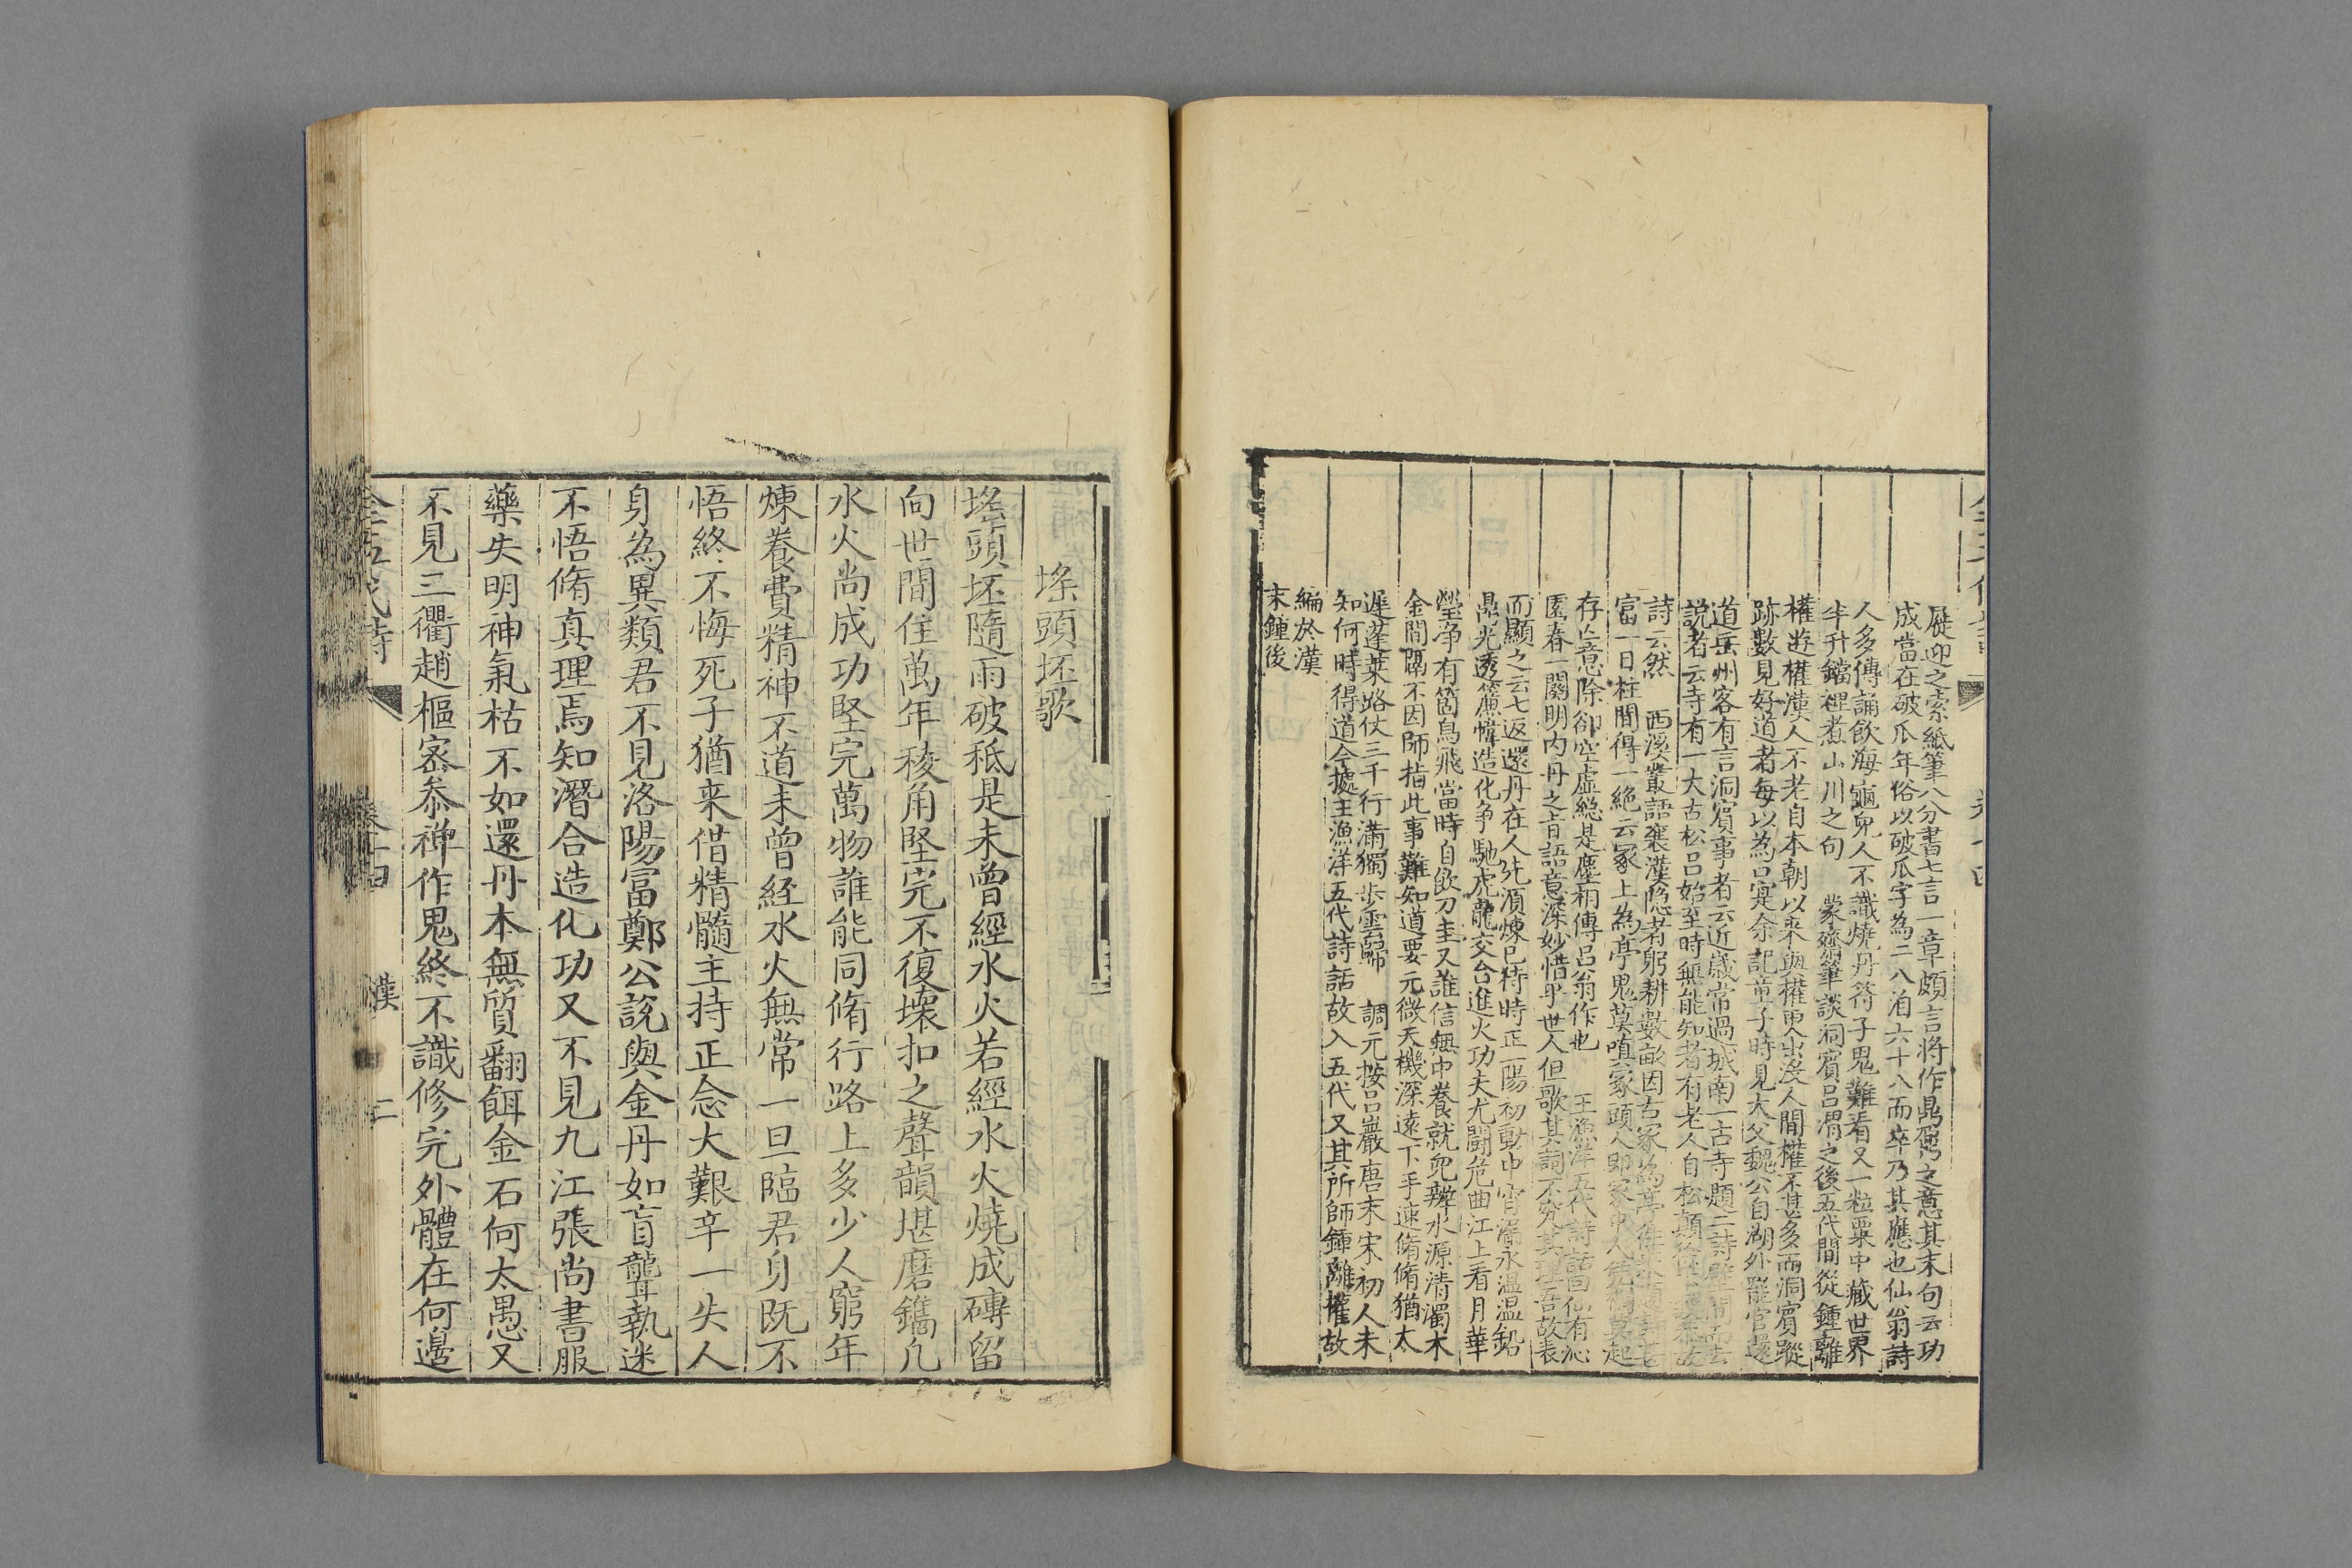 屣迎之索紙筆八分書七言一章頗言將作鼎鼐之意其末句云功
成當在破瓜年俗以破瓜字為二八洎六十八而卒乃其應也仙翁詩
人多傳誦飲海龜兒人不識燒丹符子鬼難看又一粒粟中藏世界
半升鐺裡煮山川之句 蒙齋筆談洞賓吕渭之後五代間從鍾離
權遊權漢人不老自本朝以來與權更出没人間權不甚多而洞賓蹤
跡數見好道者每以為口寔余記童子時見大父魏公自湖外罷官還
道岳州客有言洞賓事者云近歳常過城南一古寺題二詩壁間而去
説者云寺有一大古松吕始至時無能知者有老人自松顛徐下致恭故
詩云然 西溪叢語襄漢隐者躬耕數畝因古冢為亭
富一日柱間得一絶云冢上為亭鬼莫嗔冢頭人即冢中人
存亡意除卻空虛總是塵相傳吕翁作也 王漁洋五代詩話曰仙有沁
園春一闋明内丹之㫖語意深妙惜乎世人但歌其詞不究其理吾故表
而顯之云七返還丹在人先須煉已待時正一陽初動中宵漏永温温鉛
鼎光透簾幃造化争馳虎龍交合進火功夫尤鬬危曲江上看月華
瑩净有箇烏飛當時自飲刀圭又誰信無中養就兒辨水源清濁木
金間隔不因師指此事難知道要元微天機深遠下手速脩脩猶太
遲蓬萊路仗三千行滿獨步雲歸 調元按吕巖唐末宋初人未
知何時得道今據王漁洋五代詩話故入五代又其所師鍾離權故
編於漢
末鍾後
㙛頭坯歌
㙛頭坯隨雨破秪是未曾經水火若經水火燒成磚留
向世間住萬年稜角堅完不復壞扣之聲韻堪磨鐫凡
水火尚成功堅完萬物誰能同脩行路上多少人窮年
煉養費精神不道未曾経水火無常一旦臨君身既不
悟終不悔死子猶来借精髓主持正念大艱辛一失人
身為異類君不見洛陽富鄭公説與金丹如盲聾執迷
不悟脩真理焉知潛合造化功又不見九江張尚書服
藥失明神氣枯不如還丹本無質翻餌金石何太愚又
不見三衢趙樞宻叅禅作鬼終不識修完外體在何邊
全五代詩 卷十四 漢 二